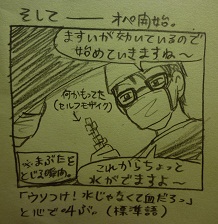 そして――オペ開始。
ますいが効いているので
始めていきますね〜
何かもってた
(セルフモザイク)
…まぶたを
とじる瞬間。
これからちょっと
水がでますよ〜
「ウソつけ!水じゃなくて血だろっ」
と心で叫ぶ。(標準語)